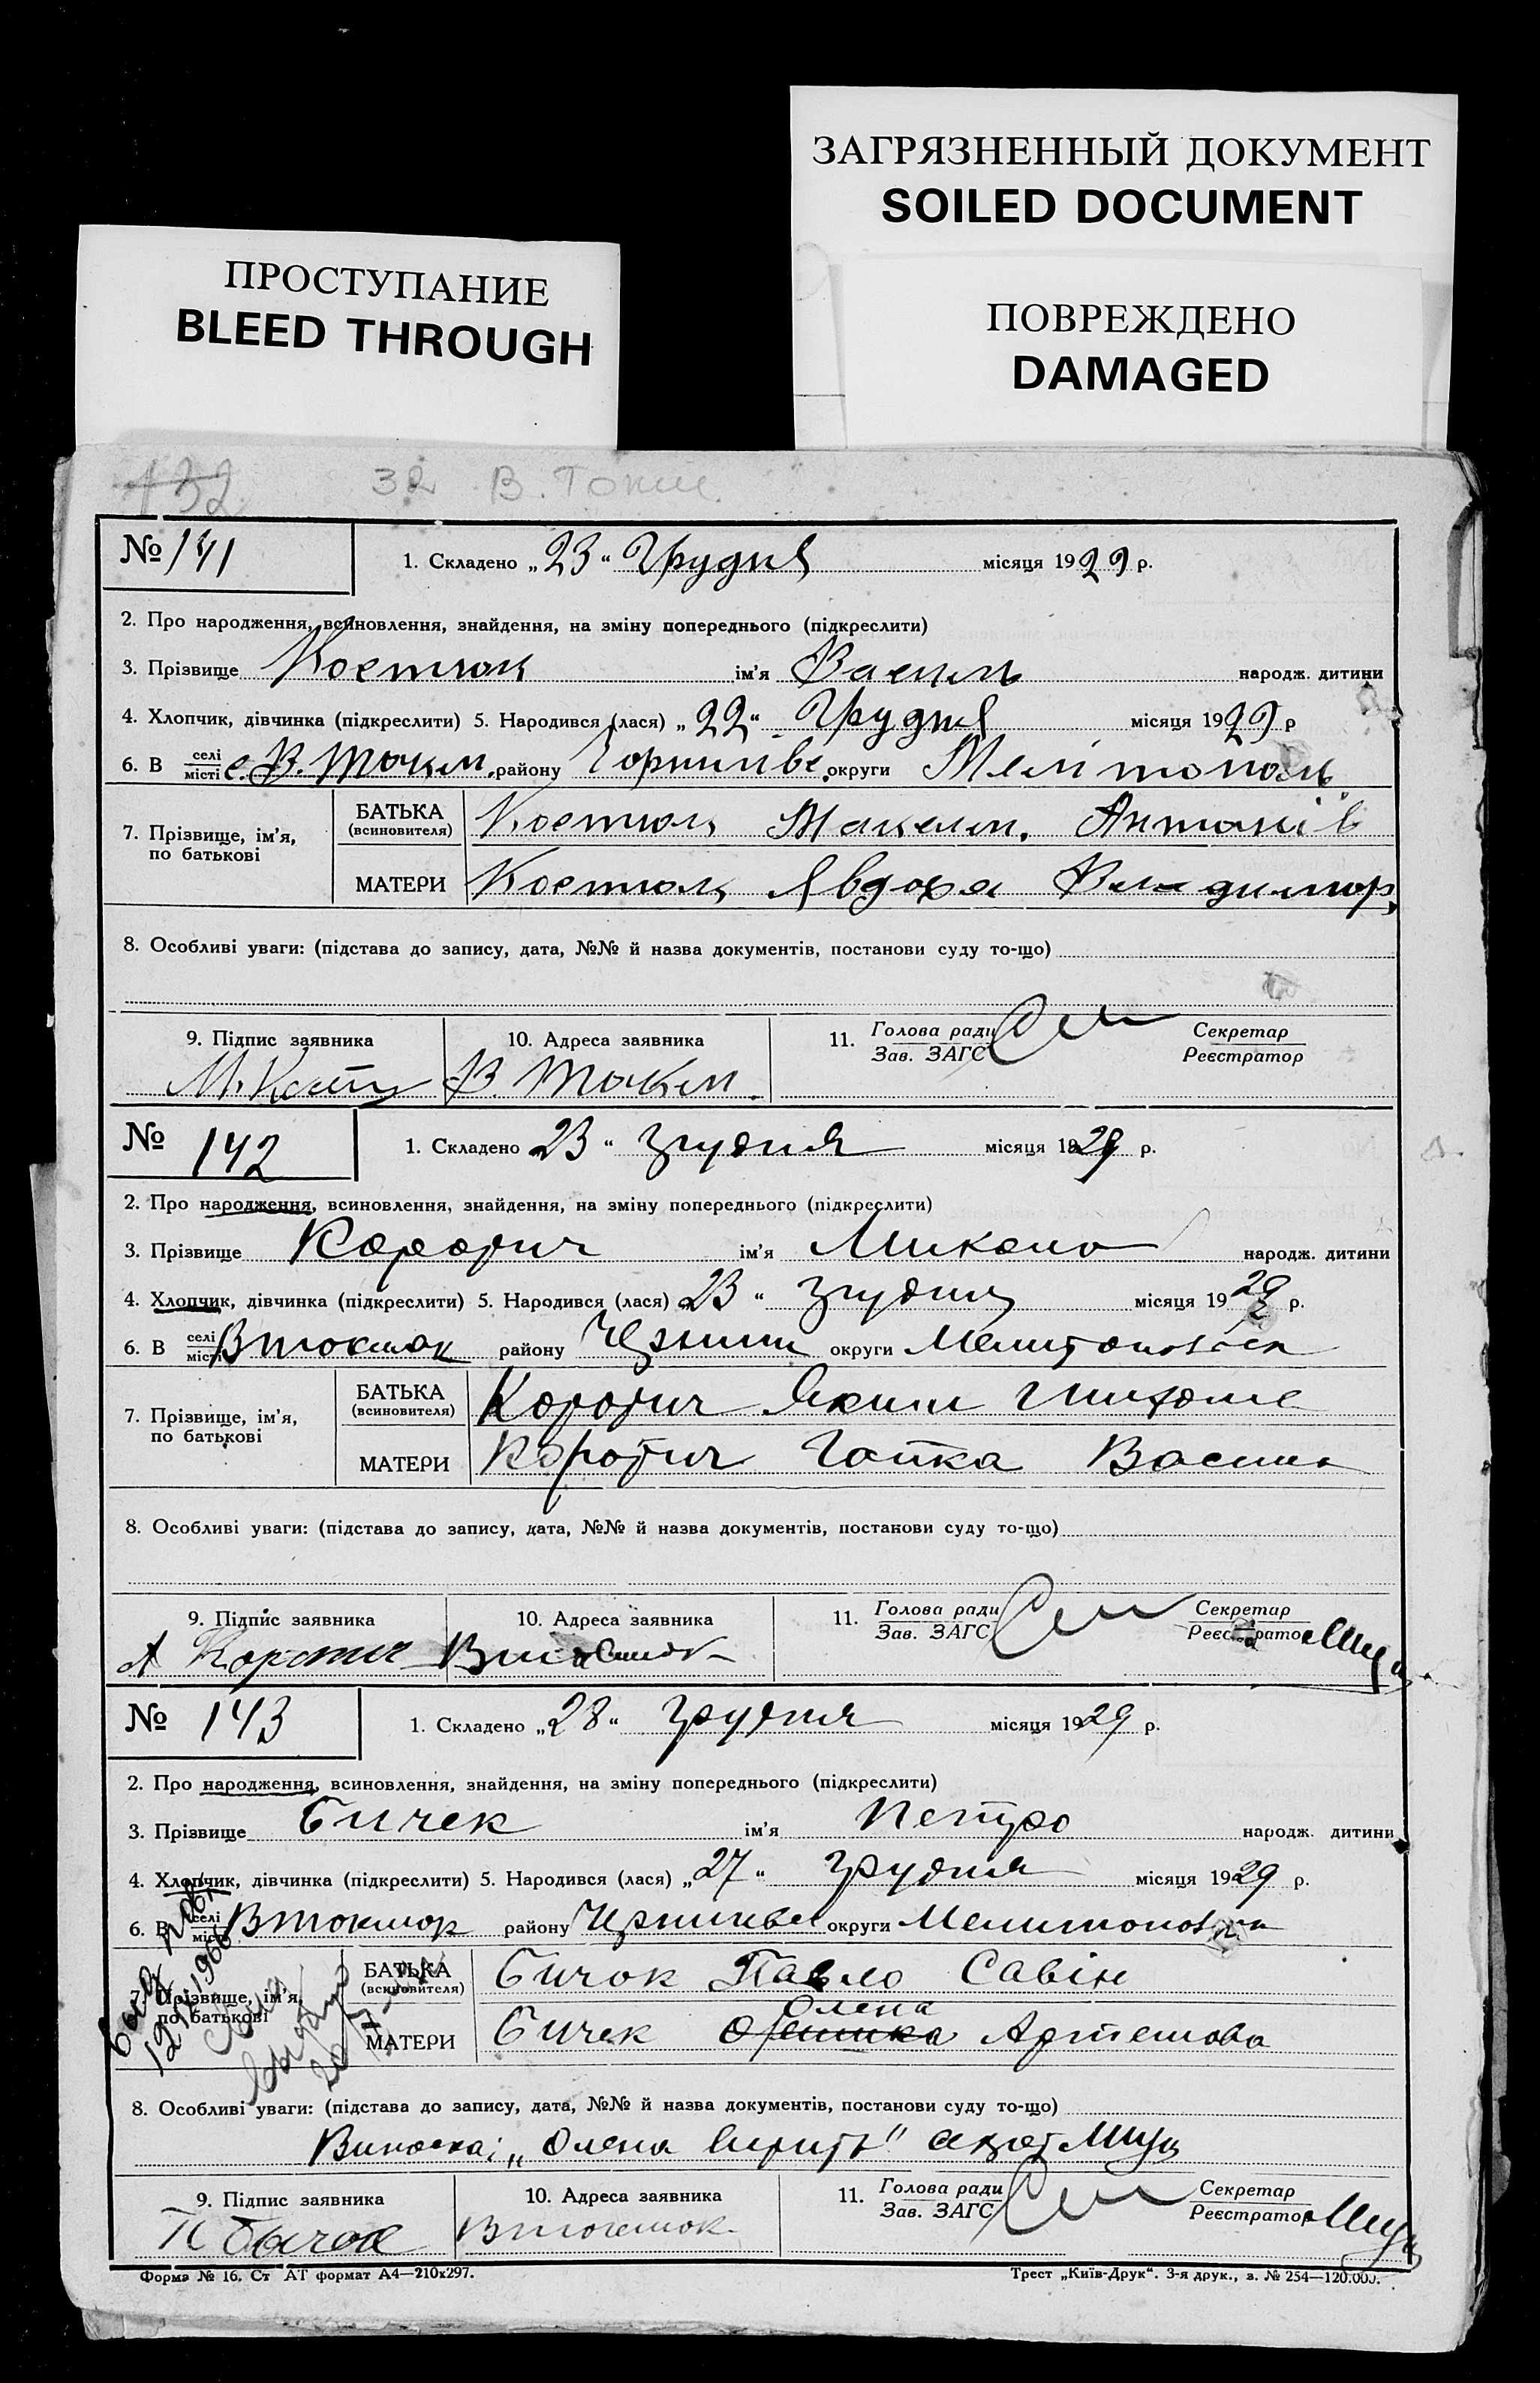 ЗАГРЯЗНЕННЫЙ ДОКУМЕНТ
SOILED DOCUMENT
ПРОСТУПАНИЕ
BLEED THROUGH
ПОВРЕЖДЕНО
DAMAGED
132 32 В. Токм.
№ 141 1. Складено „23“ Грудня місяця 1929 р.
2. Про народження, всиновлення, знайдення, на зміну попереднього (підкреслити)
3. Прізвище Костюк ім'я Василь народж. дитини
4. Хлопчик, дівчинка (підкреслити) 5. Народився (лася) „22“ Грудня місяця 1929 р
6. В селі місті с. В. Токм. району округи Мелітополь
7. Прізвище, ім'я, по батькові
БАТЬКА (всиновителя) Костюк Антонів
МАТЕРИ Костюк Явдоха Владимир.
8. Особливі уваги: (підстава до запису, дата, №№ й назва документів, постанови суду то-що)
9. Підпис заявника 10. Адреса заявника 11. Голова ради Зав. ЗАГС Секретар Реєстратор
В. Токм.
№ 142 1. Складено 23“ грудня місяця 1929 р.
2. Про народження, всиновлення, знайдення, на зміну попереднього (підкреслити)
3. Прізвище Коротич ім'я Микола народж. дитини
4. Хлопчик, дівчинка (підкреслити) 5. Народився (лася) 23“ грудня місяця 1929 р.
6. В селі місті Втокмак району округи
7. Прізвище, ім'я, по батькові
БАТЬКА (всиновителя) Коротич Яким
МАТЕРИ Коротич Гапка Васил
8. Особливі уваги: (підстава до запису, дата, №№ й назва документів, постанови суду то-що)
9. Підпис заявника 10. Адреса заявника 11. Голова ради Зав. ЗАГС Секретар Реєстратор
Коротич Втокмак
№ 143 1. Складено „28“ грудня місяця 1929 р.
2. Про народження, всиновлення, знайдення, на зміну попереднього (підкреслити)
3. Прізвище Бичек ім'я Петро народж. дитини
4. Хлопчик, дівчинка (підкреслити) 5. Народився (лася) „27“ грудня місяця 1929 р.
6. В селі місті Втокмак району округи
7. Прізвище, ім'я, по батькові
БАТЬКА (всиновителя) Бичок Павло Савін
Олена
МАТЕРИ Бичек Артемова
8. Особливі уваги: (підстава до запису, дата, №№ й назва документів, постанови суду то-що)
Виноска: „Олена вирить“
9. Підпис заявника 10. Адреса заявника 11. Голова ради Зав. ЗАГС Секретар Реєстратор
П Бычок Втокмак
Форма № 16. Ст АТ формат А4—210х297. Трест „Київ-Друк“. 3-я друк., з. № 254—120.000.